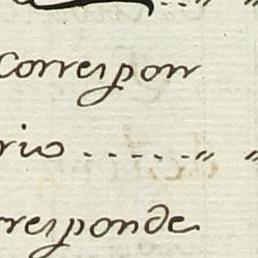 correspon
rio ...... " "
rresponde